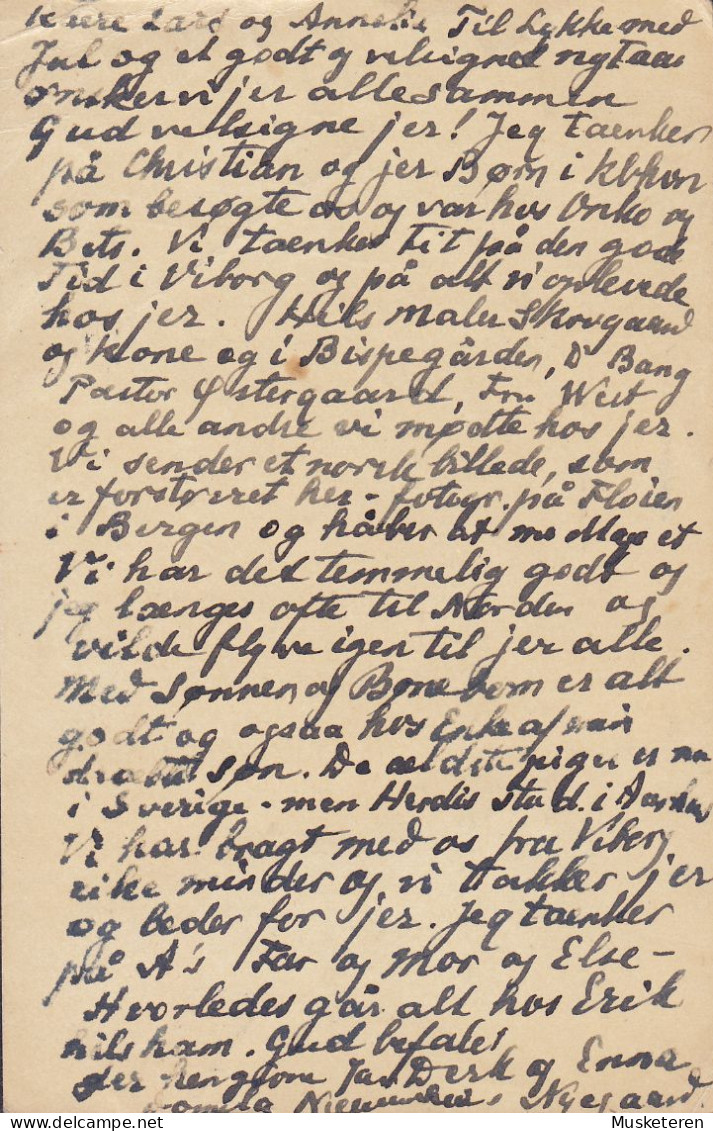 Kære Lars og Annelie Til Lykke med
Jul og et godt og velsignet nytaar
ønsker vi jer allesammen
Gud velsigne jer! Jeg taenker
på Christian og jer Børn i Kbhvn
som besøgte os og var hos Onko og
Bets. Vi taenker tit på den gode
Tid i Viborg og på alt vi oplevede
hos jer. Hils maler Skovgaard
og Kone og i Bispegården, Dr Bang
Pastor Østergaard, Fru West
og alle andre vi mødte hos jer.
Vi sender et norsk billede, som
er forstørret her - fotogr. på Fløien
i Bergen og håber at modtage et
Vi har det temmelig godt og
jeg længes ofte til Norden og
vilde flyve igen til jer alle.
Med Sønnen og Børnebørn er alt
godt og ogsaa hos Enke af min
søn. De ældste piger er nu
i Sverige - men Herdis stud. i Aarhus
Vi har bragt med os fra Viborg
rike minder og vi takker jer
og beder for jer. Jeg taenker
på A's Far og Mor og Else -
Hvorledes går alt hos Erik
hils ham. Gud befalet
der hengiven Jan Derk og Emma
Domela Nieuwenhuis Nyegaard.